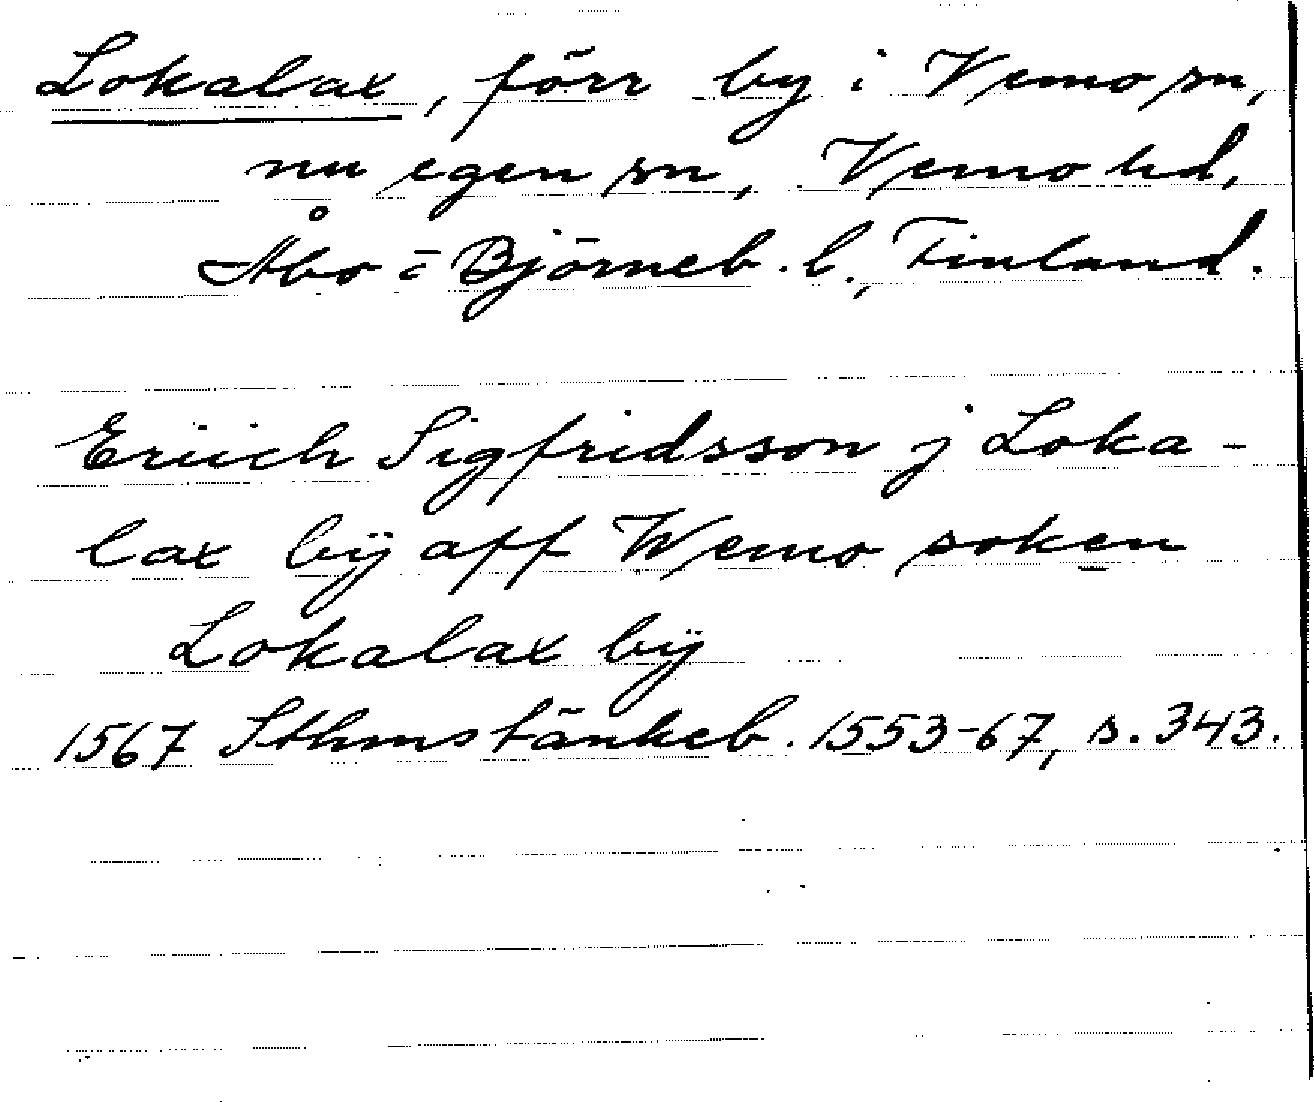 Lokalax, förr by i Vemo sn,
nu egen sn, Vemo hd,
Åbo = Björneb. l., Finland.
Eriich Sigfridsson j Loka-
lax bÿ aff Wemo soken
Lokalax bÿ
1567 Sthms tänkeb. 1553-67, s. 343.